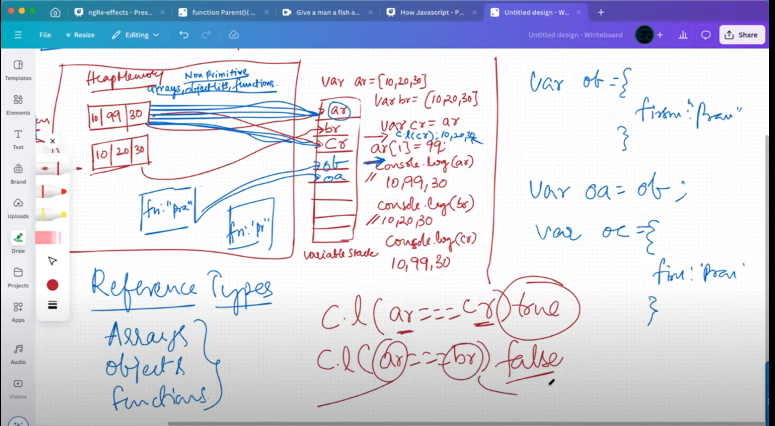 ngRx-effects - Pres...
function Parent(){ ...
Give a man a fish a...
How Javascript - P...
Untitled design - W...
File
Resize
Editing
Untitled design - Whiteboard
Share
Templates
Elements
Text
Brand
Uploads
Draw
Projects
Apps
Audio
Videos
Heap Memory
Non Primitive
arrays, object lits, functions.
10 | 99 | 30
10 | 20 | 30
fn: "pra"
fn: "pr"
ar
br
cr
ob
oa
variable stack
var ar = [10,20,30]
var br = [10,20,30]
var cr = ar
c.l(cr); 10,20,30
ar[1] = 99;
console.log(ar)
// 10,99,30
console.log(br)
// 10,20,30
console.log(cr)
10,99,30
var ob = {
"Pran"
}
var oa = ob;
var oc = {
}
Reference Types
Arrays
objects
functions
c.l(ar === cr) true
c.l(ar === br) false